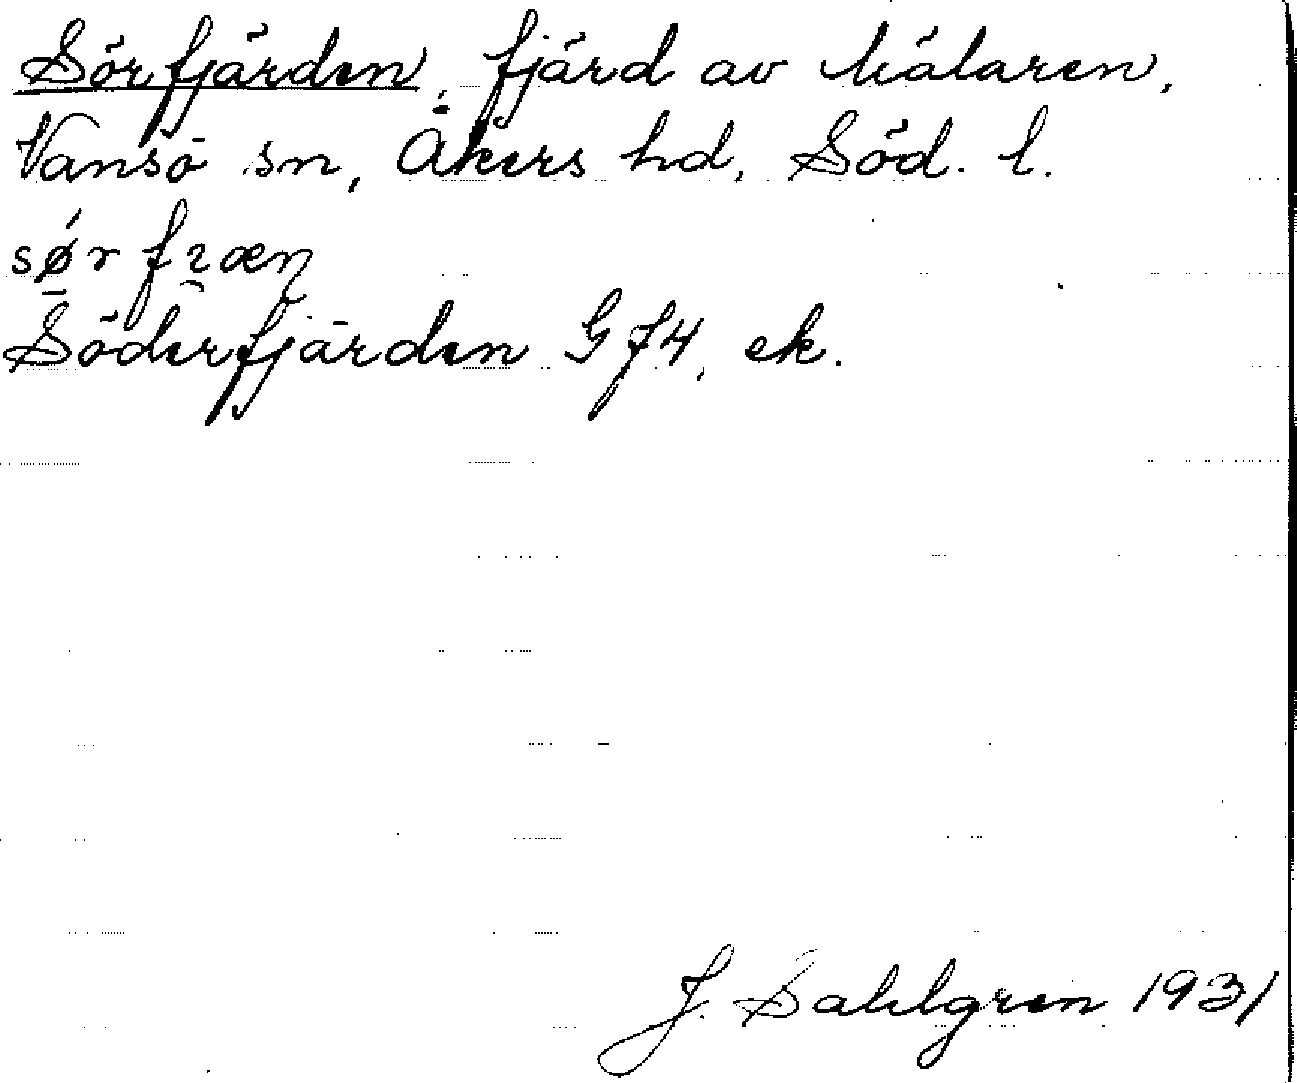 Sörfjärden, fjärd av Mälaren,
Vansö sn, Åkers hd, Söd. l.
Söderfjärden GJ4, ek.
J. Sahlgren 1931